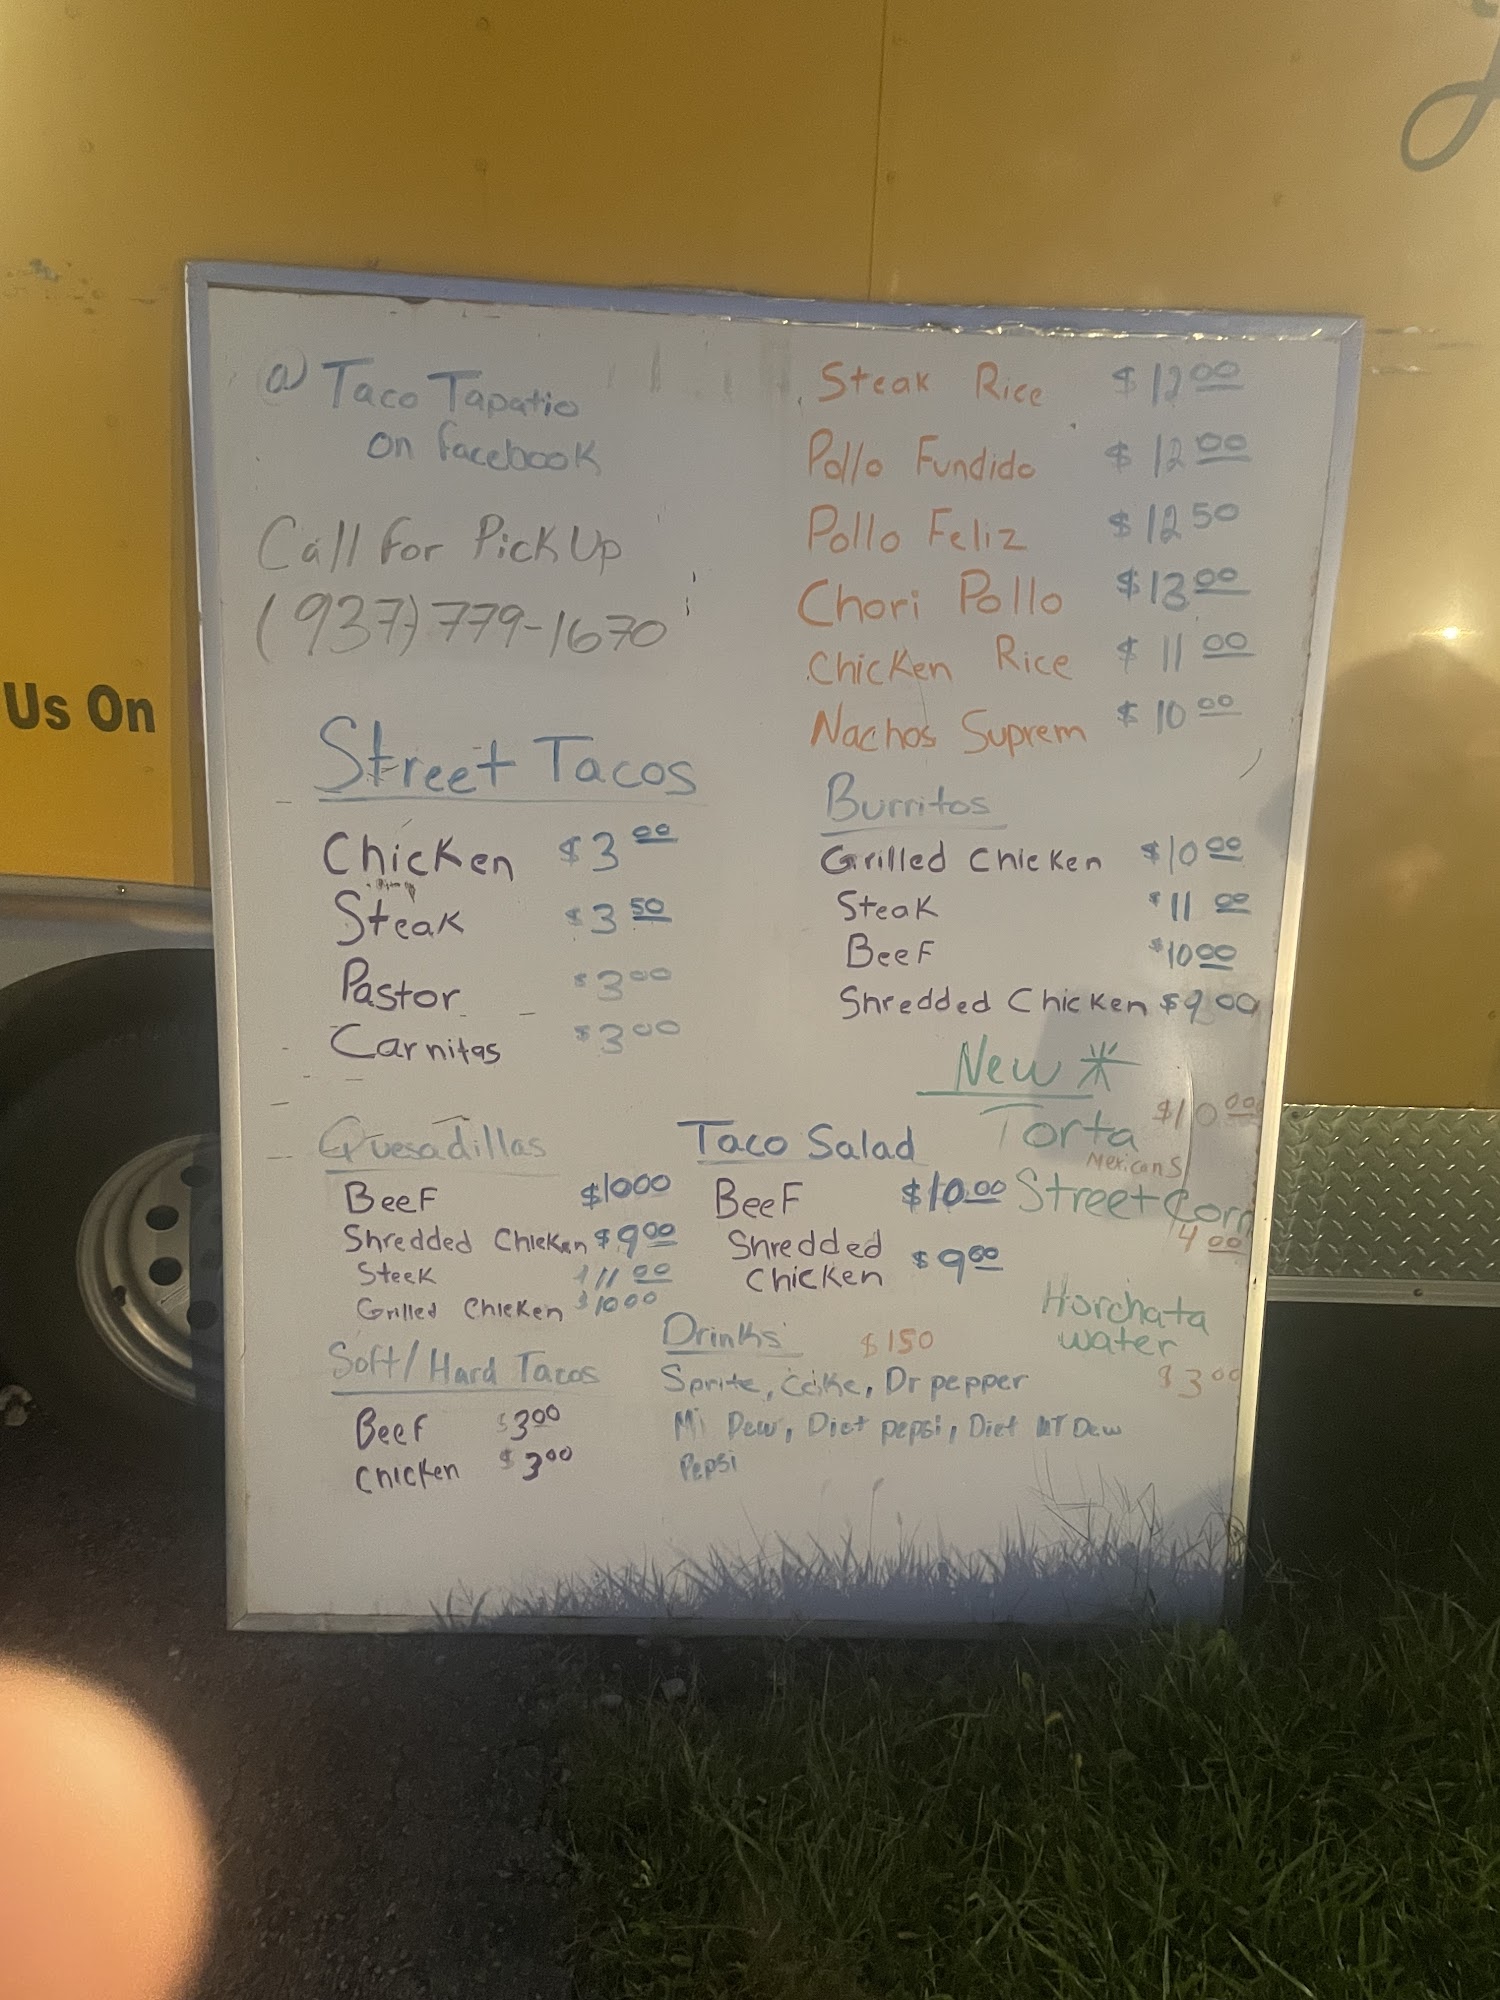 @ Taco Tapatio
on facebook
Call for Pick Up
(937) 779-1670
Street Tacos
Chicken $3 00
Steak $3 50
Pastor $3 00
Carnitas $3 00
Quesadillas
Beef $10 00
Shredded Chicken $9 00
Steek $11 00
Grilled Chicken $10 00
Soft/Hard Tacos
Beef $3 00
Chicken $3 00
Steak Rice $12 00
Pollo Fundido $12 00
Pollo Feliz $12 50
Chori Pollo $13 00
Chicken Rice $11 00
Nachos Suprem $10 00
Burritos
Grilled Chicken $10 00
Steak $11 00
Beef $10 00
Shredded Chicken $9 00
New *
Torta $10 00
Mexican S
Street Corn
4 00
Horchata
water
$3 00
Taco Salad
Beef $10.00
Shredded
Chicken $9 00
Drinks $1 50
Sprite, Coke, Dr pepper
Mt Dew, Diet pepsi, Diet MT Dew
Pepsi
Us On